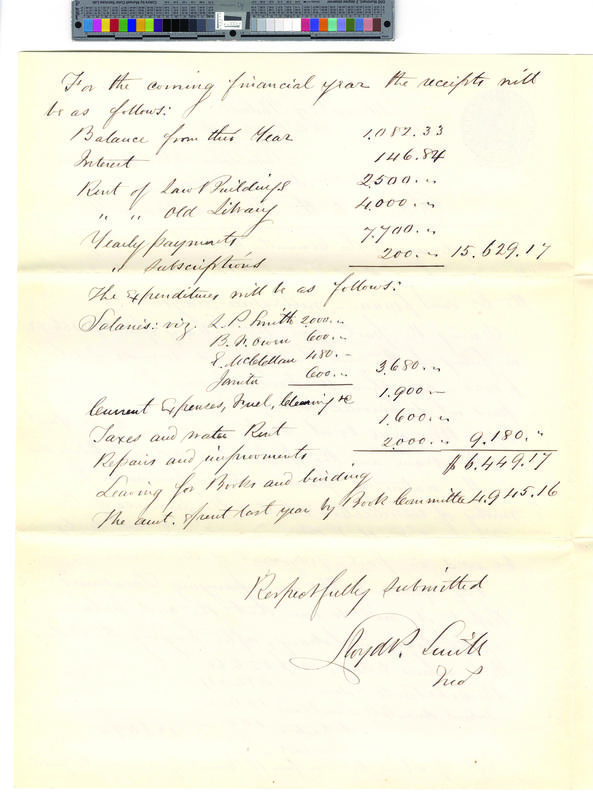 For the coming financial year the receipts will
be as follows:
Balance from this Year 1.082.33
Interest 146.84
Rent of Law Buildings 2500.„
„ „ Old Library 4.000.„
Yearly payments 7.700.„
„ Subscriptions 200.„ 15.629.17
The Expenditures will be as follows:
Salaries: viz. L. P. Smith 2000.„
B. N. Owen 600.„
E. McClellan 480.„
Janitor 600.„ 3.680.„
Current Expenses, Fuel, Cleaning &c 1.900 —
Taxes and water Rent 1.600.„
Repairs and improvments 2.000.„ 9.180.„
Leaving for Books and binding $6.449.17
The amt. spent last year by Book Committee 4.945.16
Respectfully submitted
Lloyd P. Smith